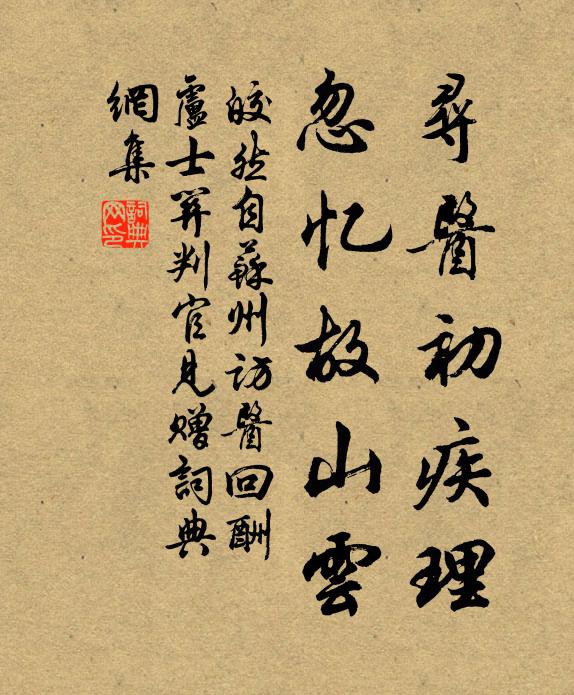 尋醫初疾理
忽忆故山雲
皎然自蘇州訪醫回酬
盧士關判官見贈詞典
網集
詞典网印